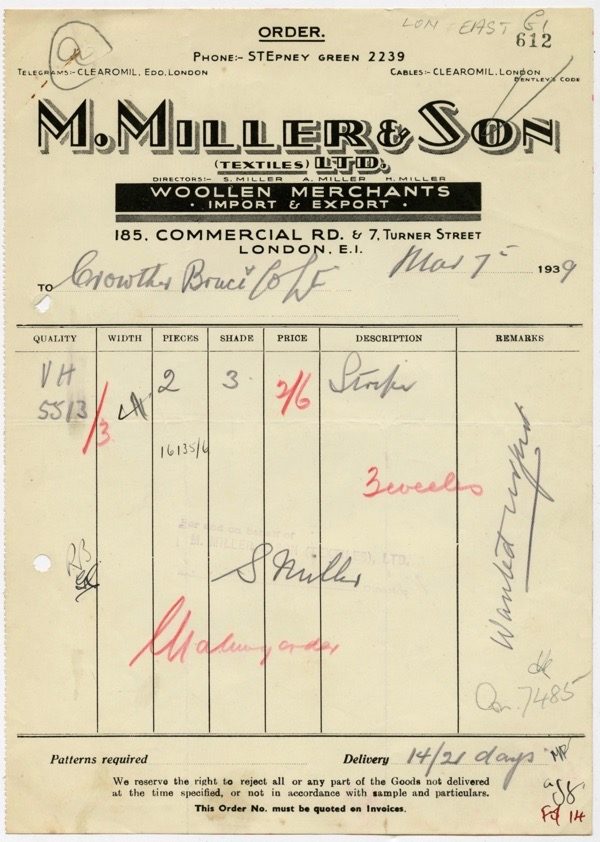 ORDER.
LON EAST E1
612
a
PHONE:- STEPNEY GREEN 2239
TELEGRAMS:- CLEAROMIL, EDO, LONDON
CABLES:- CLEAROMIL, LONDON
BENTLEY'S CODE
M. MILLER & SON
(TEXTILES) LTD.
DIRECTORS:- S. MILLER A. MILLER H. MILLER
WOOLLEN MERCHANTS
· IMPORT & EXPORT ·
185, COMMERCIAL RD. & 7, TURNER STREET
LONDON, E.1.
Mar 7 1939
TO Crowther Bruce Co Ld
QUALITY WIDTH PIECES SHADE PRICE DESCRIPTION REMARKS
VH 2 3 2/6 Stripe
5513 /3
16135/6
3 weeks
Wanted urgent
For and on behalf of
M. MILLER & SON (TEXTILES), LTD.
Director
S Miller
Making order
7485
Patterns required Delivery 14/21 days MP
We reserve the right to reject all or any part of the Goods not delivered
at the time specified, or not in accordance with sample and particulars.
This Order No. must be quoted on Invoices.
Fo 14